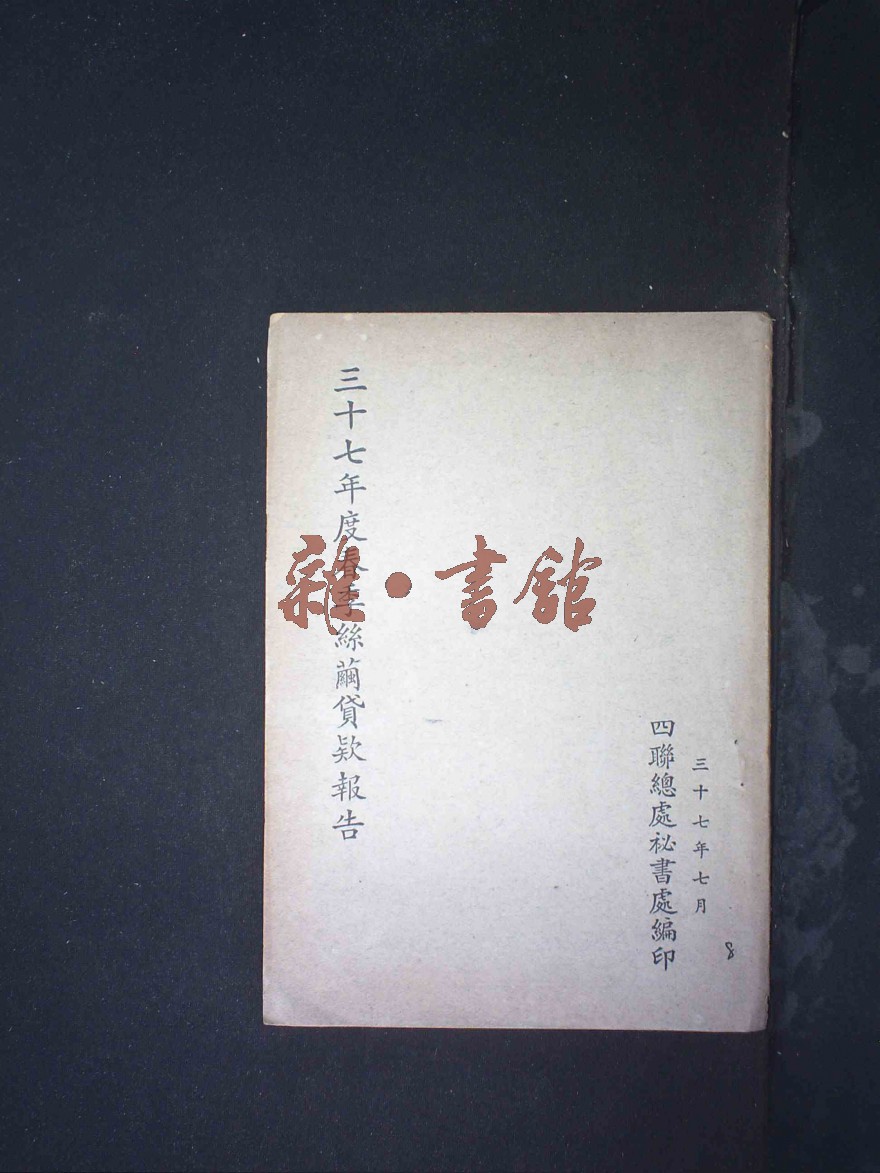 三十七年七月
四聯總處祕書處編印
三十七年度春季絲繭貸欵報告
雜·書館
8